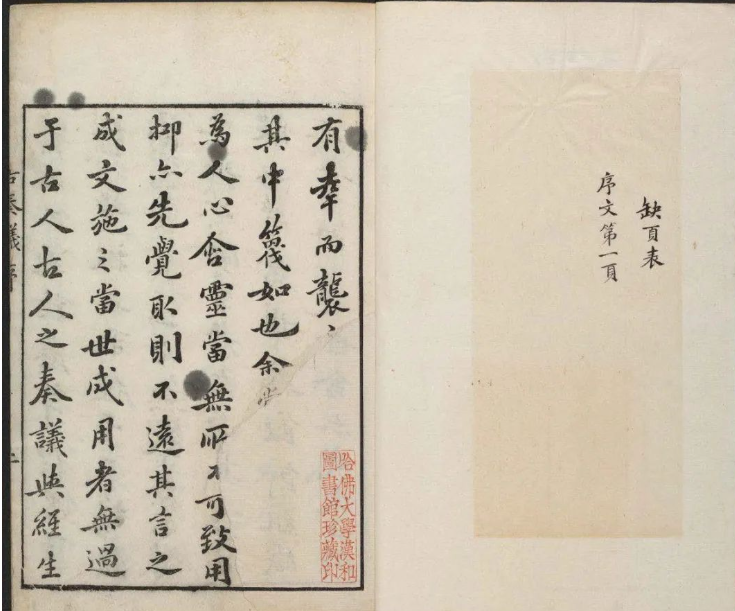 缺頁表
序文第一頁
有而襲
其中篾如也余
為人心含靈當無所不可致用
抑亦先覺取則不遠其言之
成文施之當世成用者無過
于古人古人之奏議與經生
哈佛大學漢和
圖書館珍藏印
古奏議序